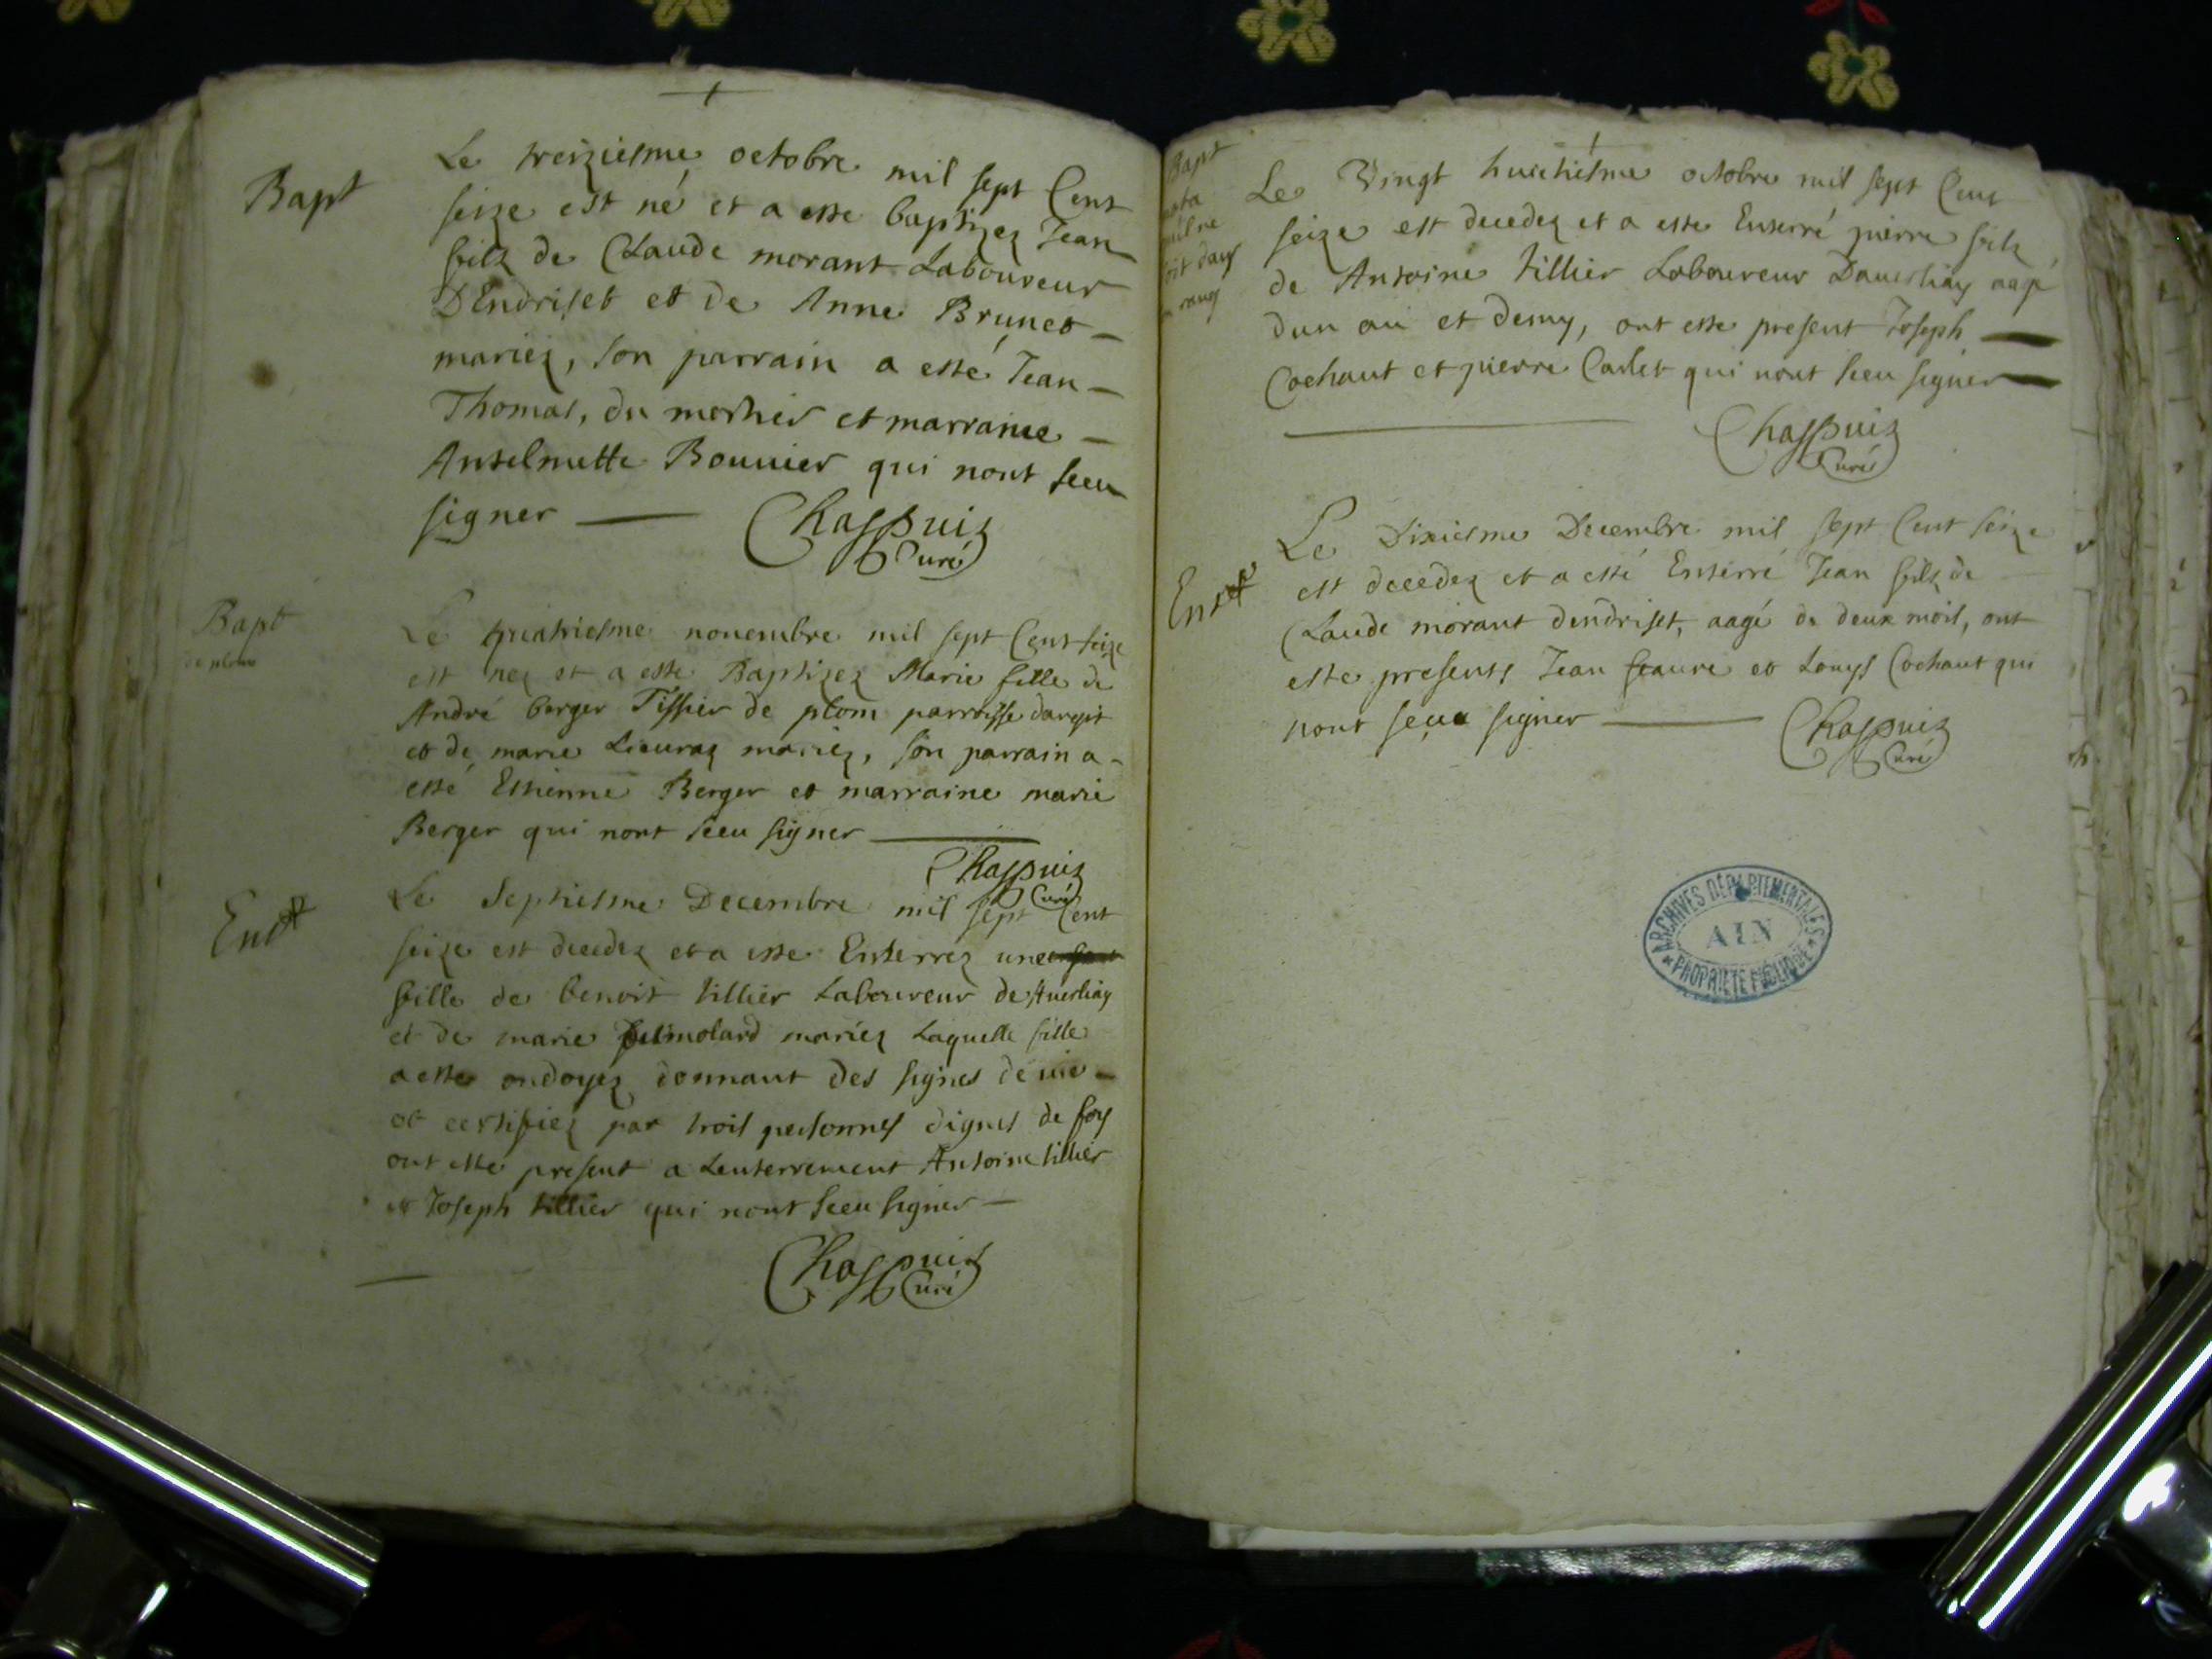 Bapt
Le treiziesme octobre mil sept Cent
seize est né et a este baptizez Jean
filz de Claude morant Laboureur
DEndriset et de Anne Brunet
mariez, son parrain a esté Jean
Thomas, du mortier et marraine
Anselmette Bouuier qui nont sceu
signer
Chappuiz
Curé
Bapt
Le quatriesme nouembre mil sept Cent seize
est nez et a este Baptizez Marie fille de
André berger Tissier de plom parroisse dargit
et de marie Lieuraz mariez, son parrain a
esté Estienne Berger et marraine marie
Berger qui nont sceu signer
Chappuiz
Curé
Ent
Le Septiesme Decembre mil sept Cent
seize est decedez et a este Enterrez une
fille de benoit tillier Laboureur de Auerliay
et de marie mariez Laquelle fille
a este ondoyez donnant des signes de uie
et certifiez par trois personnes dignes de foy
ont esté present a Lenterrement Antoine tillier
et Joseph tillier qui nont sceu signer
Chappuiz
Curé
Bapt
nota
Le Vingt huictiesme octobre mil sept Cent
seize est decedez et a este Enterré pierre filz
de Antoine tillier Laboureur Dauerliay aagé
dun an et demy, ont este present Joseph
Cochaut et pierre Carlet qui nont sceu signer
Chappuiz
Curé
Ent
Le Dixiesme Decembre mil sept Cent seize
est decedez et a esté Enterré Jean filz de
Claude morant dendriset, aagé de deux mois, ont
este presents Jean feaure et Louys Cochaut qui
nont sceu signer
Chappuiz
Curé
ARCHIVES DÉPARTEMENTALES
AIN
PROPRIÉTÉ PUBLIQUE